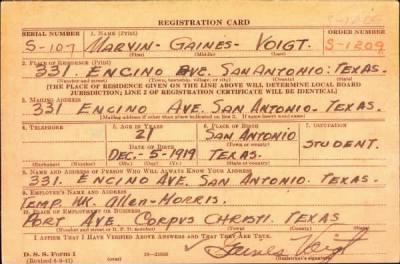 REGISTRATION CARD
SERIAL NUMBER 1. NAME (Print) ORDER NUMBER
S-107 MARVIN - GAINES - VOIGT. S-1209
(First) (Middle) (Last)
2. PLACE OF RESIDENCE (Print)
331. ENCINO AVE. SAN ANTONIO: TEXAS.
(Number and street) (Town, township, village, or city) (County) (State)
[THE PLACE OF RESIDENCE GIVEN ON THE LINE ABOVE WILL DETERMINE LOCAL BOARD
JURISDICTION; LINE 2 OF REGISTRATION CERTIFICATE WILL BE IDENTICAL]
3. MAILING ADDRESS
331 ENCINO AVE. SAN ANTONIO - TEXAS.
[Mailing address if other than place indicated on line 2. If same insert word same]
4. TELEPHONE 5. AGE IN YEARS 6. PLACE OF BIRTH 7. OCCUPATION
21 SAN ANTONIO STUDENT.
DATE OF BIRTH (Town or county)
DEC.-5-1919 TEXAS.
(Exchange) (Number) (Mo.) (Day) (Yr.) (State or country)
8. NAME AND ADDRESS OF PERSON WHO WILL ALWAYS KNOW YOUR ADDRESS
331 ENCINO AVE. SAN ANTONIO. TEXAS.
9. EMPLOYER'S NAME AND ADDRESS
TEMP. WK. Allen-MORRIS.
10. PLACE OF EMPLOYMENT OR BUSINESS
PORT AVE CORPUS CHRISTI. TEXAS
(Number and street or R. F. D. number) (Town) (County) (State)
I AFFIRM THAT I HAVE VERIFIED ABOVE ANSWERS AND THAT THEY ARE TRUE.
D. S. S. Form 1 Gaines Voigt